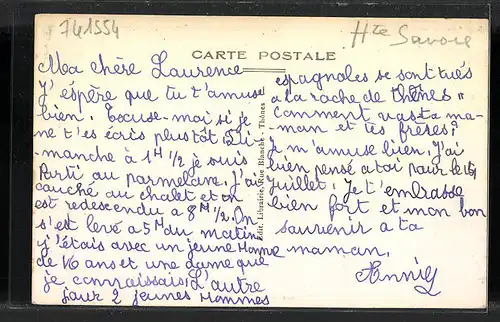 741554
Hte Savoie
CARTE POSTALE
Ma chère Laurence
J'éspère que tu t'amuse
bien. Excuse-moi si je
ne t'es écris plustôt Di-
manche à 1H 1/2 je suis
Parti au parmelan. J'ai
couché au chalet et on
est redescendu a 8H 1/2. On
s'est levé a 5H du matin
j'étais avec un jeune Homme
de 16 ans et une dame que
je connaissais, L'autre
jour 2 jeunes Hommes
Edit. Librairie, Rue Blanche - Thônes
espagnoles se sont tués
a la roche de thônes,,
Comment vas ta ma-
man et tes frêses,
Je m'amuse bien, j'ai
bien pensé a toi pour le
juillet, Je t'embrasse
bien fort et mon bon
souvenir a ta
maman,
Annie